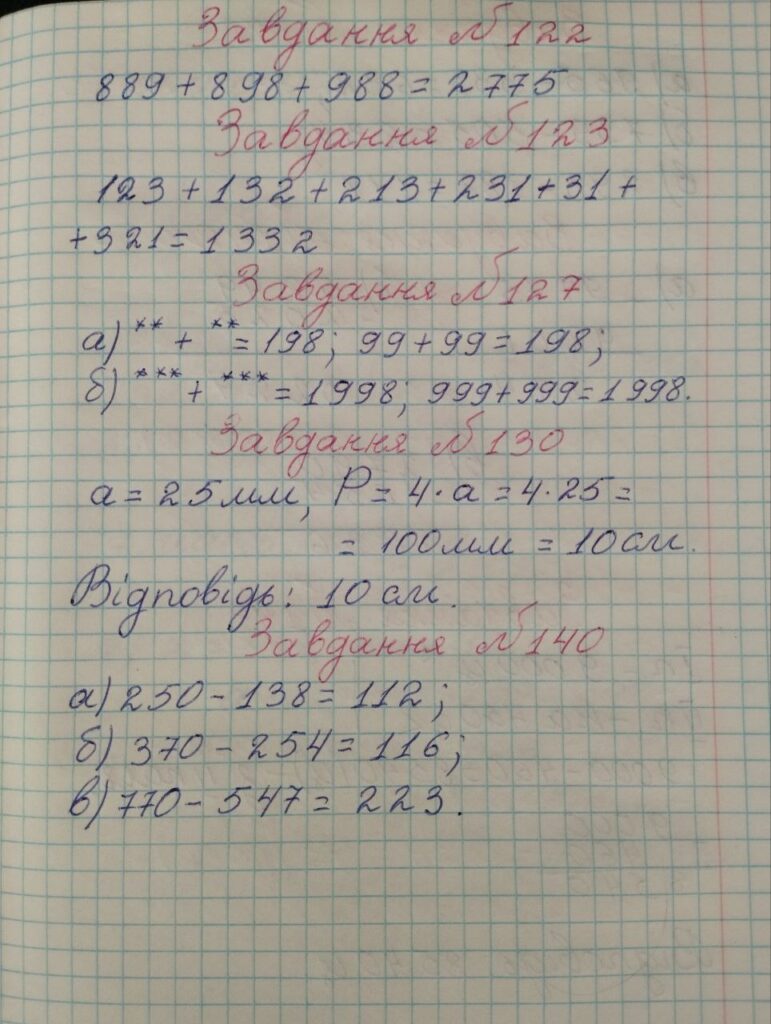 Завдання №122
889 + 898 + 988 = 2775
Завдання №123
123 + 132 + 213 + 231 + 31 +
+ 321 = 1332
Завдання №127
а) ** + ** = 198; 99 + 99 = 198;
б) *** + *** = 1998; 999 + 999 = 1998.
Завдання №130
a = 25 мм, P = 4 · a = 4 · 25 =
= 100 мм = 10 см.
Відповідь: 10 см.
Завдання №140
а) 250 - 138 = 112;
б) 370 - 254 = 116;
в) 770 - 547 = 223.